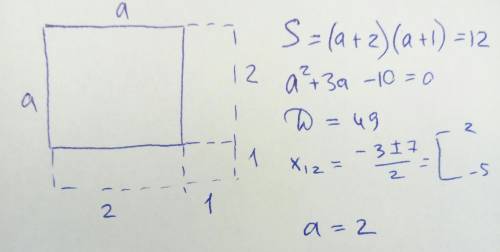 a
a
2
1
2
1
S = (a+2)(a+1) = 12
a² + 3a - 10 = 0
D = 49
x₁₂ = (-3 ± 7)/2 = [ 2
-5
a = 2